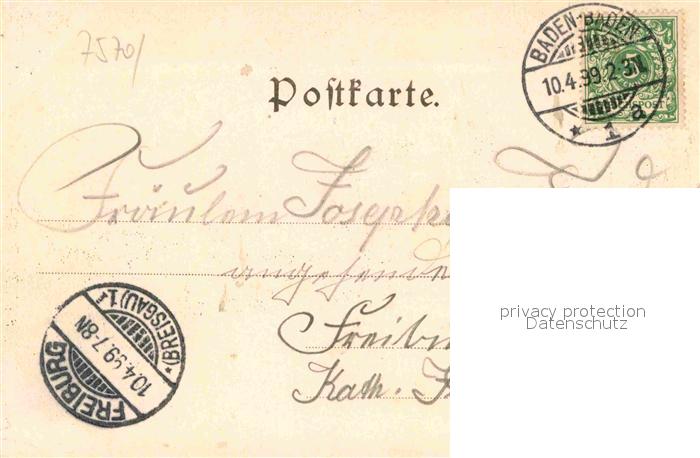 7570/
BADEN-BADEN
10.4.99.2-3N.
* 1 a
5
Postkarte.
Fräulein Josepha
angehende
Freibu
Kath. F
FREIBURG
10.4.99.7-8N
*(BREISGAU)1.
privacy protection
Datenschutz